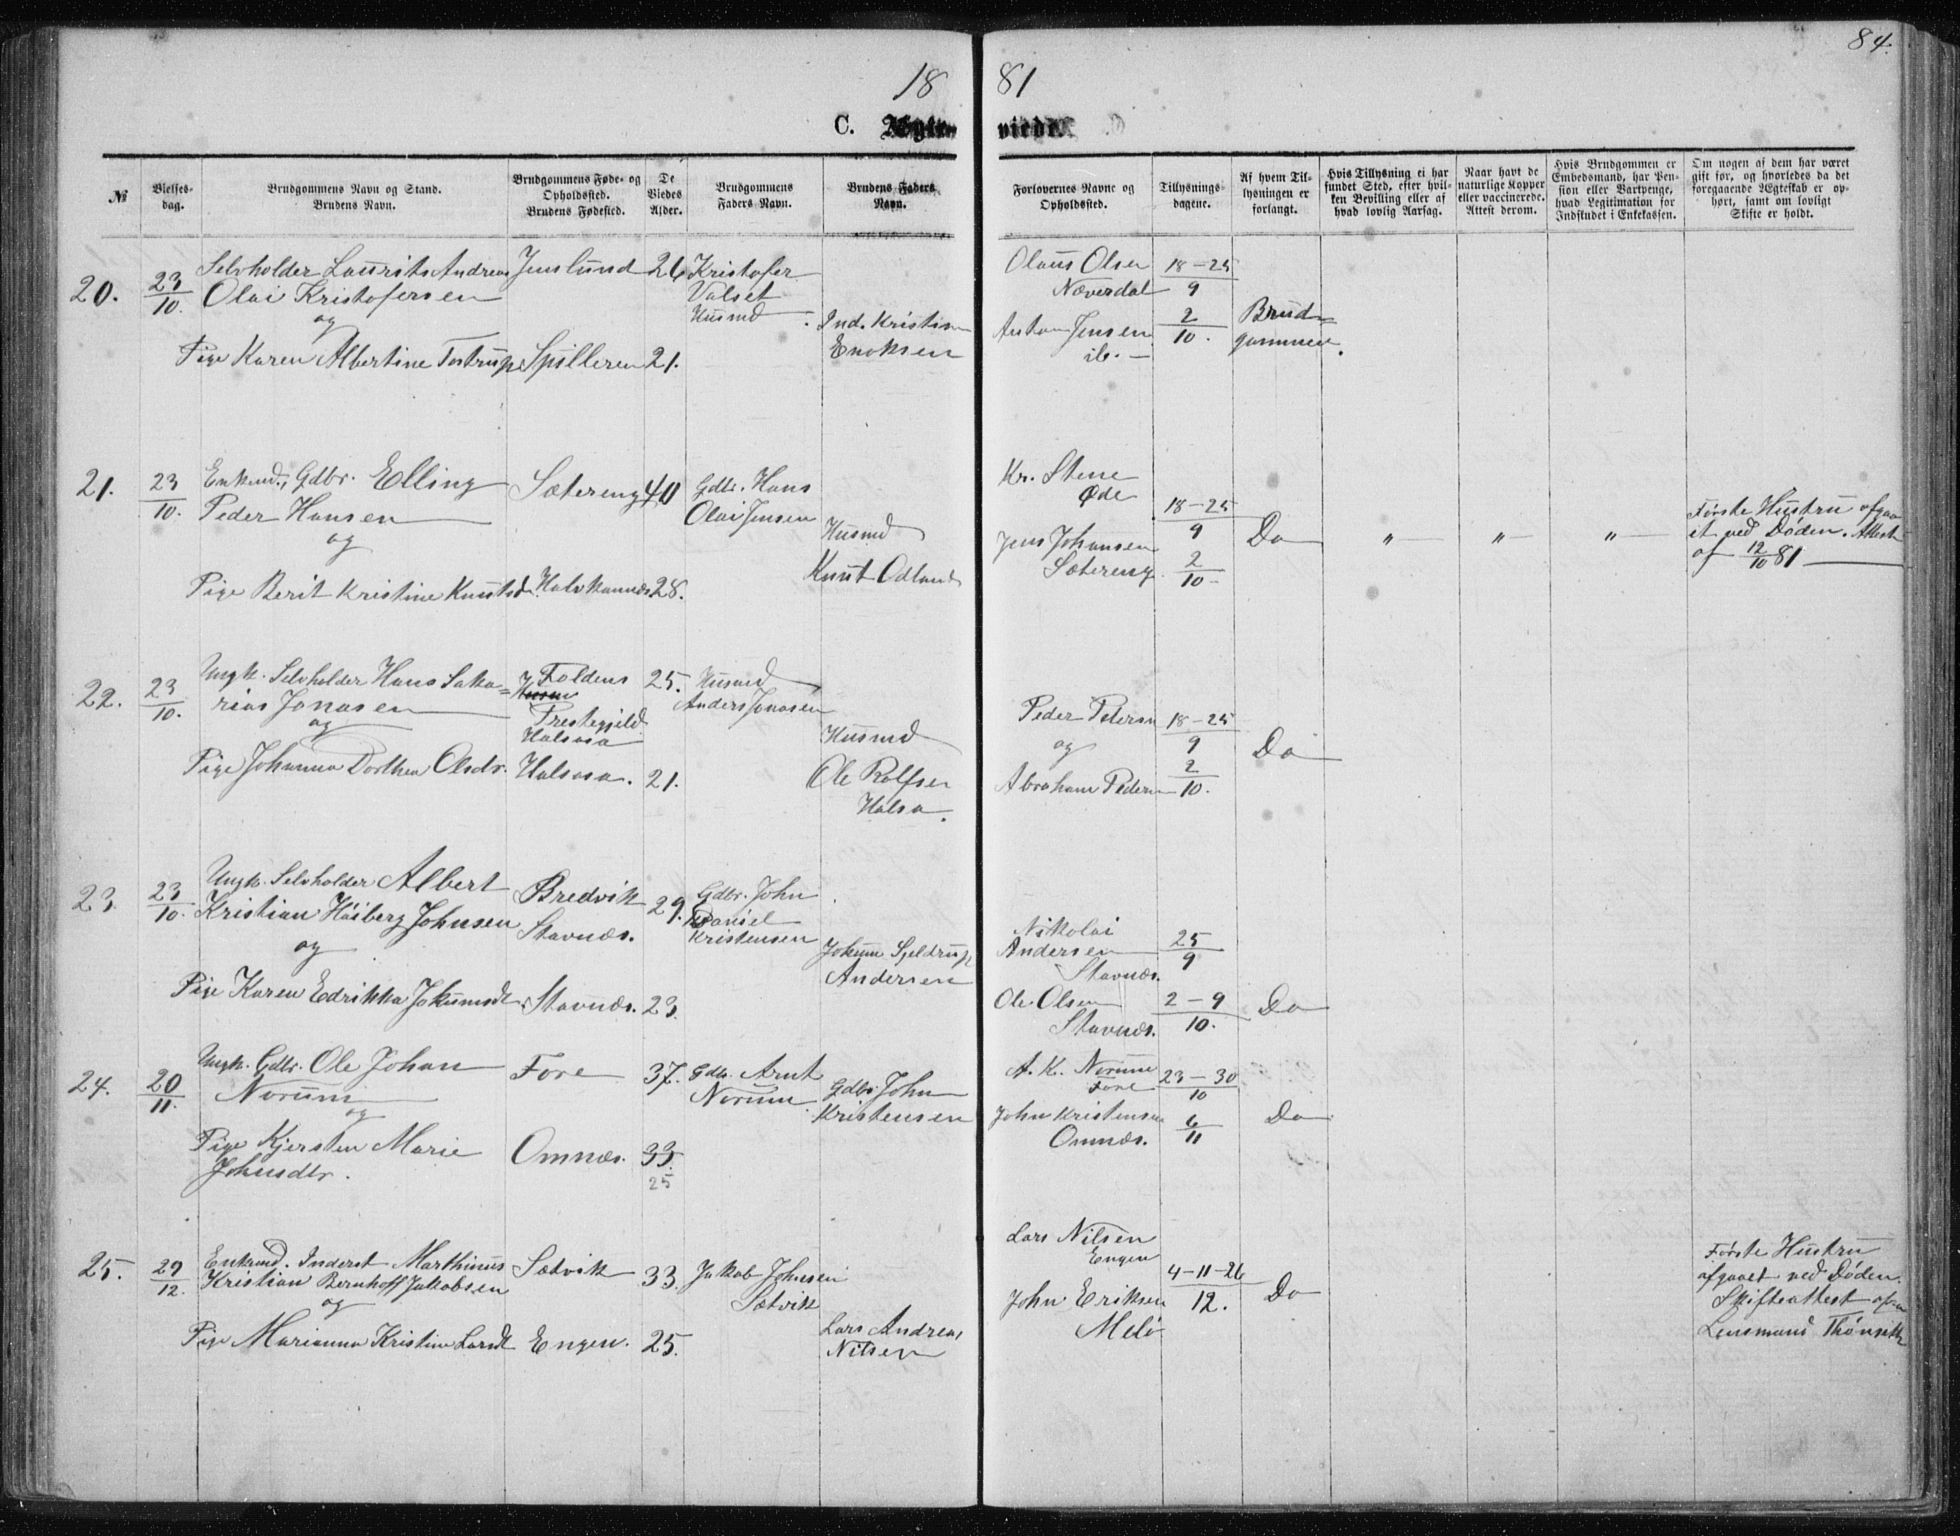 84.
18 81
C. Ægte- viede.
№
Vielses-
dag.
Brudgommens Navn og Stand.
Brudens Navn.
Brudgommens Føde- og
Opholdssted.
Brudens Fødested.
De
Viedes
Alder.
Brudgommens
Faders Navn.
Brudens Faders
Navn.
Forlovernes Navne og
Opholdssted.
Tillysnings-
dagene.
Af hvem Til-
lysningen er
forlangt.
Hvis Tillysning ei har
fundet Sted, efter hvil-
ken Bevilling eller af
hvad lovlig Aarsag.
Naar havt de
naturlige Kopper
eller vaccinerede.
Attest derom.
Hvis Brudgommen er
Embedsmand, har Pen-
sion eller Vartpenge,
hvad Legitimation for
Indskudet i Enkekassen.
Om nogen af dem har været
gift før, og hvorledes da det
foregaaende Ægteskab er op-
hørt, samt om lovligt
Skifte er holdt.
20.
23/10.
Selvholder Laurits Andreas
Olai Kristofersen
og
Pige Karen Albertine Tostrup
Jenslund
Spilleren
26
21.
Kristofer
Valset
Husmd.
Ind. Kristian
Enoksen
Olaus Olsen
Næverdal
Anton Jensen
ib. —
18-25/9
2/10.
Brud-
gommen.
21.
23/10.
Enkemd., Gdbr. Elling
Peder Hansen
og
Pige Berit Kristine Knutsd.
Sætereng
Halvkannæs
40
28.
Gdbr. Hans
Olai Jensen
Husmd
Knut Odland
Kr. Stene
Øde
Jens Johansen
Sætereng.
18-25/9
2/10-
Do
"
"
"
Første Hustru afgaa
et ved Døden. Attest
af 12/10 81
22.
23/10.
Ungk. Selvholder Hans Saka-
rias Jonasen
og
Pige Johanna Dorthea Olsdr.
Foldens
Prestegjeld
Halsaa
Halsaa.
25.
21.
Husmd
Anders Jonasen
Husmd
Ole Rolfsen
Halsa.
Peder Petersen
og
Abraham Pedersen
18-25/9
2/10.
Do
23.
23/10.
Ungk. Selvholder Albert
Kristian Høiberg Johnsen
og
Pige Karen Edrikka Jokumsdt.
Bredvik
Stavnæs.
Stavnæs.
29.
23.
Gdbr. John
Daniel
Kristensen
Jokum Sjeldrup
Andersen
Nikolai
Andersen
Stavnæs.
Ole Olsen
Stavnæs.
25/9
2-9/10.
Do
24.
20/11.
Ungk. Gdbr. Ole Johan
Norum
og
Pige Kjersten Marie
Johnsdtr.
Fore
Omnæs.
37.
33.
25
Gdbr. Arnt
Norum
Gdbr. John
Kristensen
A. K. Norum
Fore
John Kristensen
Omnæs.
23-30/10
6/11
Do
25.
29/12.
Enkemd. Inderst Marthinus
Kristian Bernhoff Jakobsen
og
Pige Marianna Kristine Larsdt
Sætvik
Engen.
33.
25.
Jakob Johnsen
Sætvik
Lars Andreas
Nilsen
Lars Nilsen
Engen
John Eriksen
Melø
4-11-26/12.
Do
Første Hustru
afgaaet ved Døden.
Skifteattest af
Lensmand